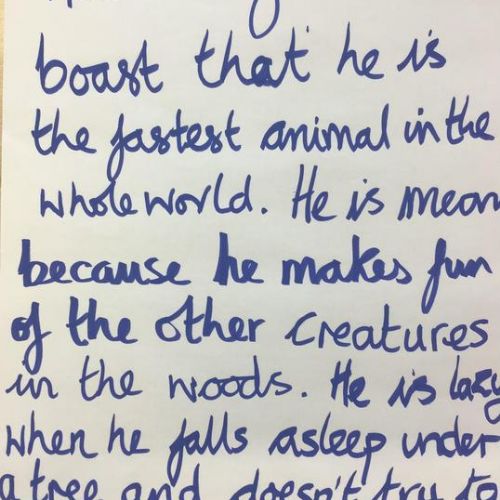 boast that he is
the fastest animal in the
whole world. He is mean
because he makes fun
of the other creatures
in the woods. He is lazy
when he falls asleep under
a tree and doesn't try to